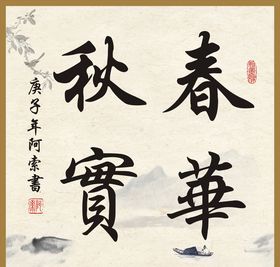 春華
秋實
庚子年阿索書